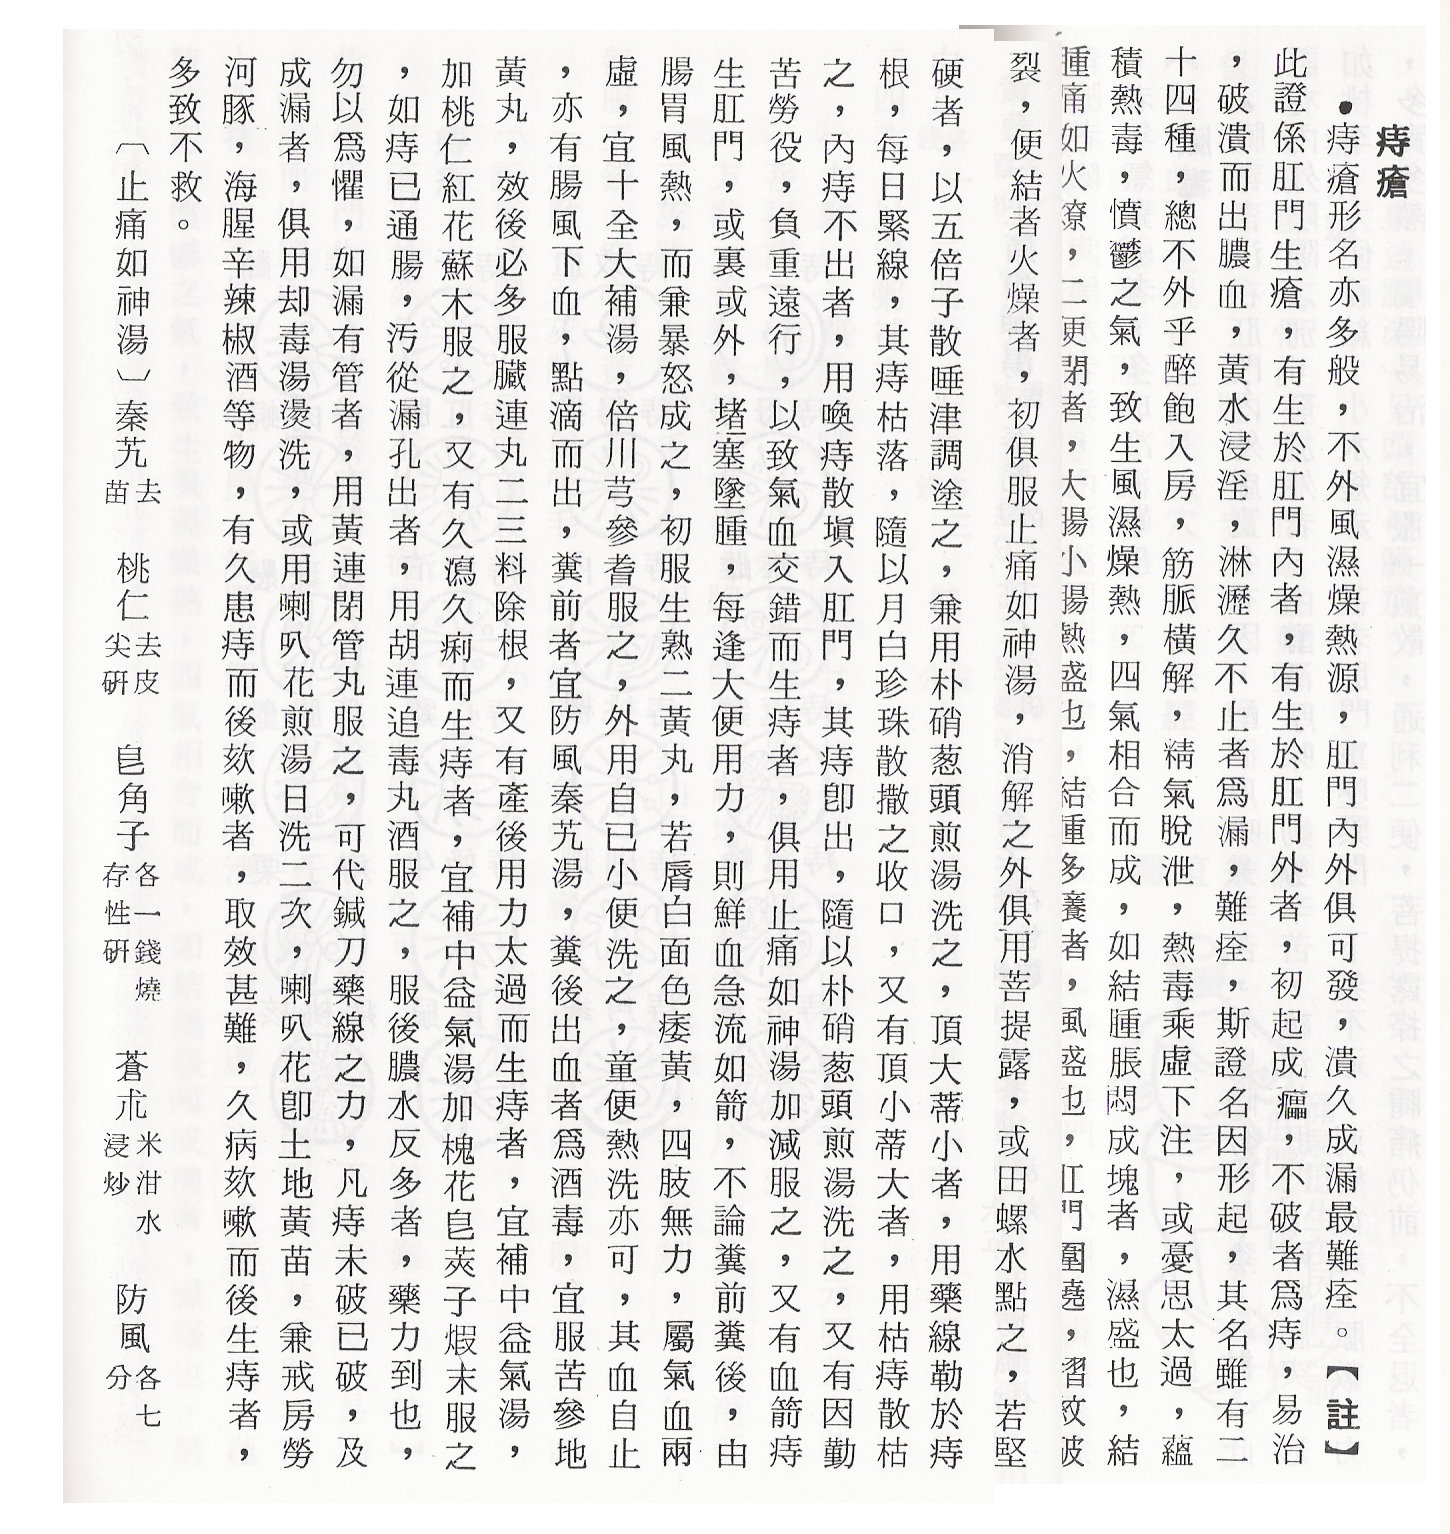 痔瘡
•痔瘡形名亦多般，不外風濕燥熱源，肛門內外俱可發，潰久成漏最難痊。【註】
此證係肛門生瘡，有生於肛門內者，有生於肛門外者，初起成㿈，不破者爲痔，易治
，破潰而出膿血，黃水浸淫，淋瀝久不止者爲漏，難痊，斯證名因形起，其名雖有二
十四種，總不外乎醉飽入房，筋脈橫解，精氣脫泄，熱毒乘虛下注，或憂思太過，蘊
積熱毒，憤鬱之氣，致生風濕燥熱，四氣相合而成，如結腫脹悶成塊者，濕盛也，結
腫痛如火燎，二更閉者，大腸小腸熱盛也，結腫多癢者，風盛也，肛門圍繞，摺紋破
裂，便結者火燥者，初俱服止痛如神湯，消解之外俱用菩提露，或田螺水點之，若堅
硬者，以五倍子散唾津調塗之，兼用朴硝葱頭煎湯洗之，頂大蒂小者，用藥線勒於痔
根，每日緊線，其痔枯落，隨以月白珍珠散撒之收口，又有頂小蒂大者，用枯痔散枯
之，內痔不出者，用喚痔散塡入肛門，其痔卽出，隨以朴硝葱頭煎湯洗之，又有因勤
苦勞役，負重遠行，以致氣血交錯而生痔者，俱用止痛如神湯加減服之，又有血箭痔
生肛門，或裏或外，堵塞墜腫，每逢大便用力，則鮮血急流如箭，不論糞前糞後，由
腸胃風熱，而兼暴怒成之，初服生熟二黃丸，若唇白面色痿黃，四肢無力，屬氣血兩
虛，宜十全大補湯，倍川芎參耆服之，外用自已小便洗之，童便熱洗亦可，其血自止
，亦有腸風下血，點滴而出，糞前者宜防風秦艽湯，糞後出血者爲酒毒，宜服苦參地
黃丸，效後必多服臟連丸二三料除根，又有產後用力太過而生痔者，宜補中益氣湯，
加桃仁紅花蘇木服之，又有久瀉久痢而生痔者，宜補中益氣湯加槐花皂莢子煆末服之
，如痔已通腸，汚從漏孔出者，用胡連追毒丸酒服之，服後膿水反多者，藥力到也，
勿以爲懼，如漏有管者，用黃連閉管丸服之，可代鍼刀藥線之力，凡痔未破已破，及
成漏者，俱用却毒湯燙洗，或用喇叭花煎湯日洗二次，喇叭花卽土地黃苗，兼戒房勞
河豚，海腥辛辣椒酒等物，有久患痔而後欬嗽者，取效甚難，久病欬嗽而後生痔者，
多致不救。
〔止痛如神湯〕秦艽去苗　桃仁去皮尖硏　皂角子各一錢燒存性硏　蒼朮米泔水浸炒　防風各七分